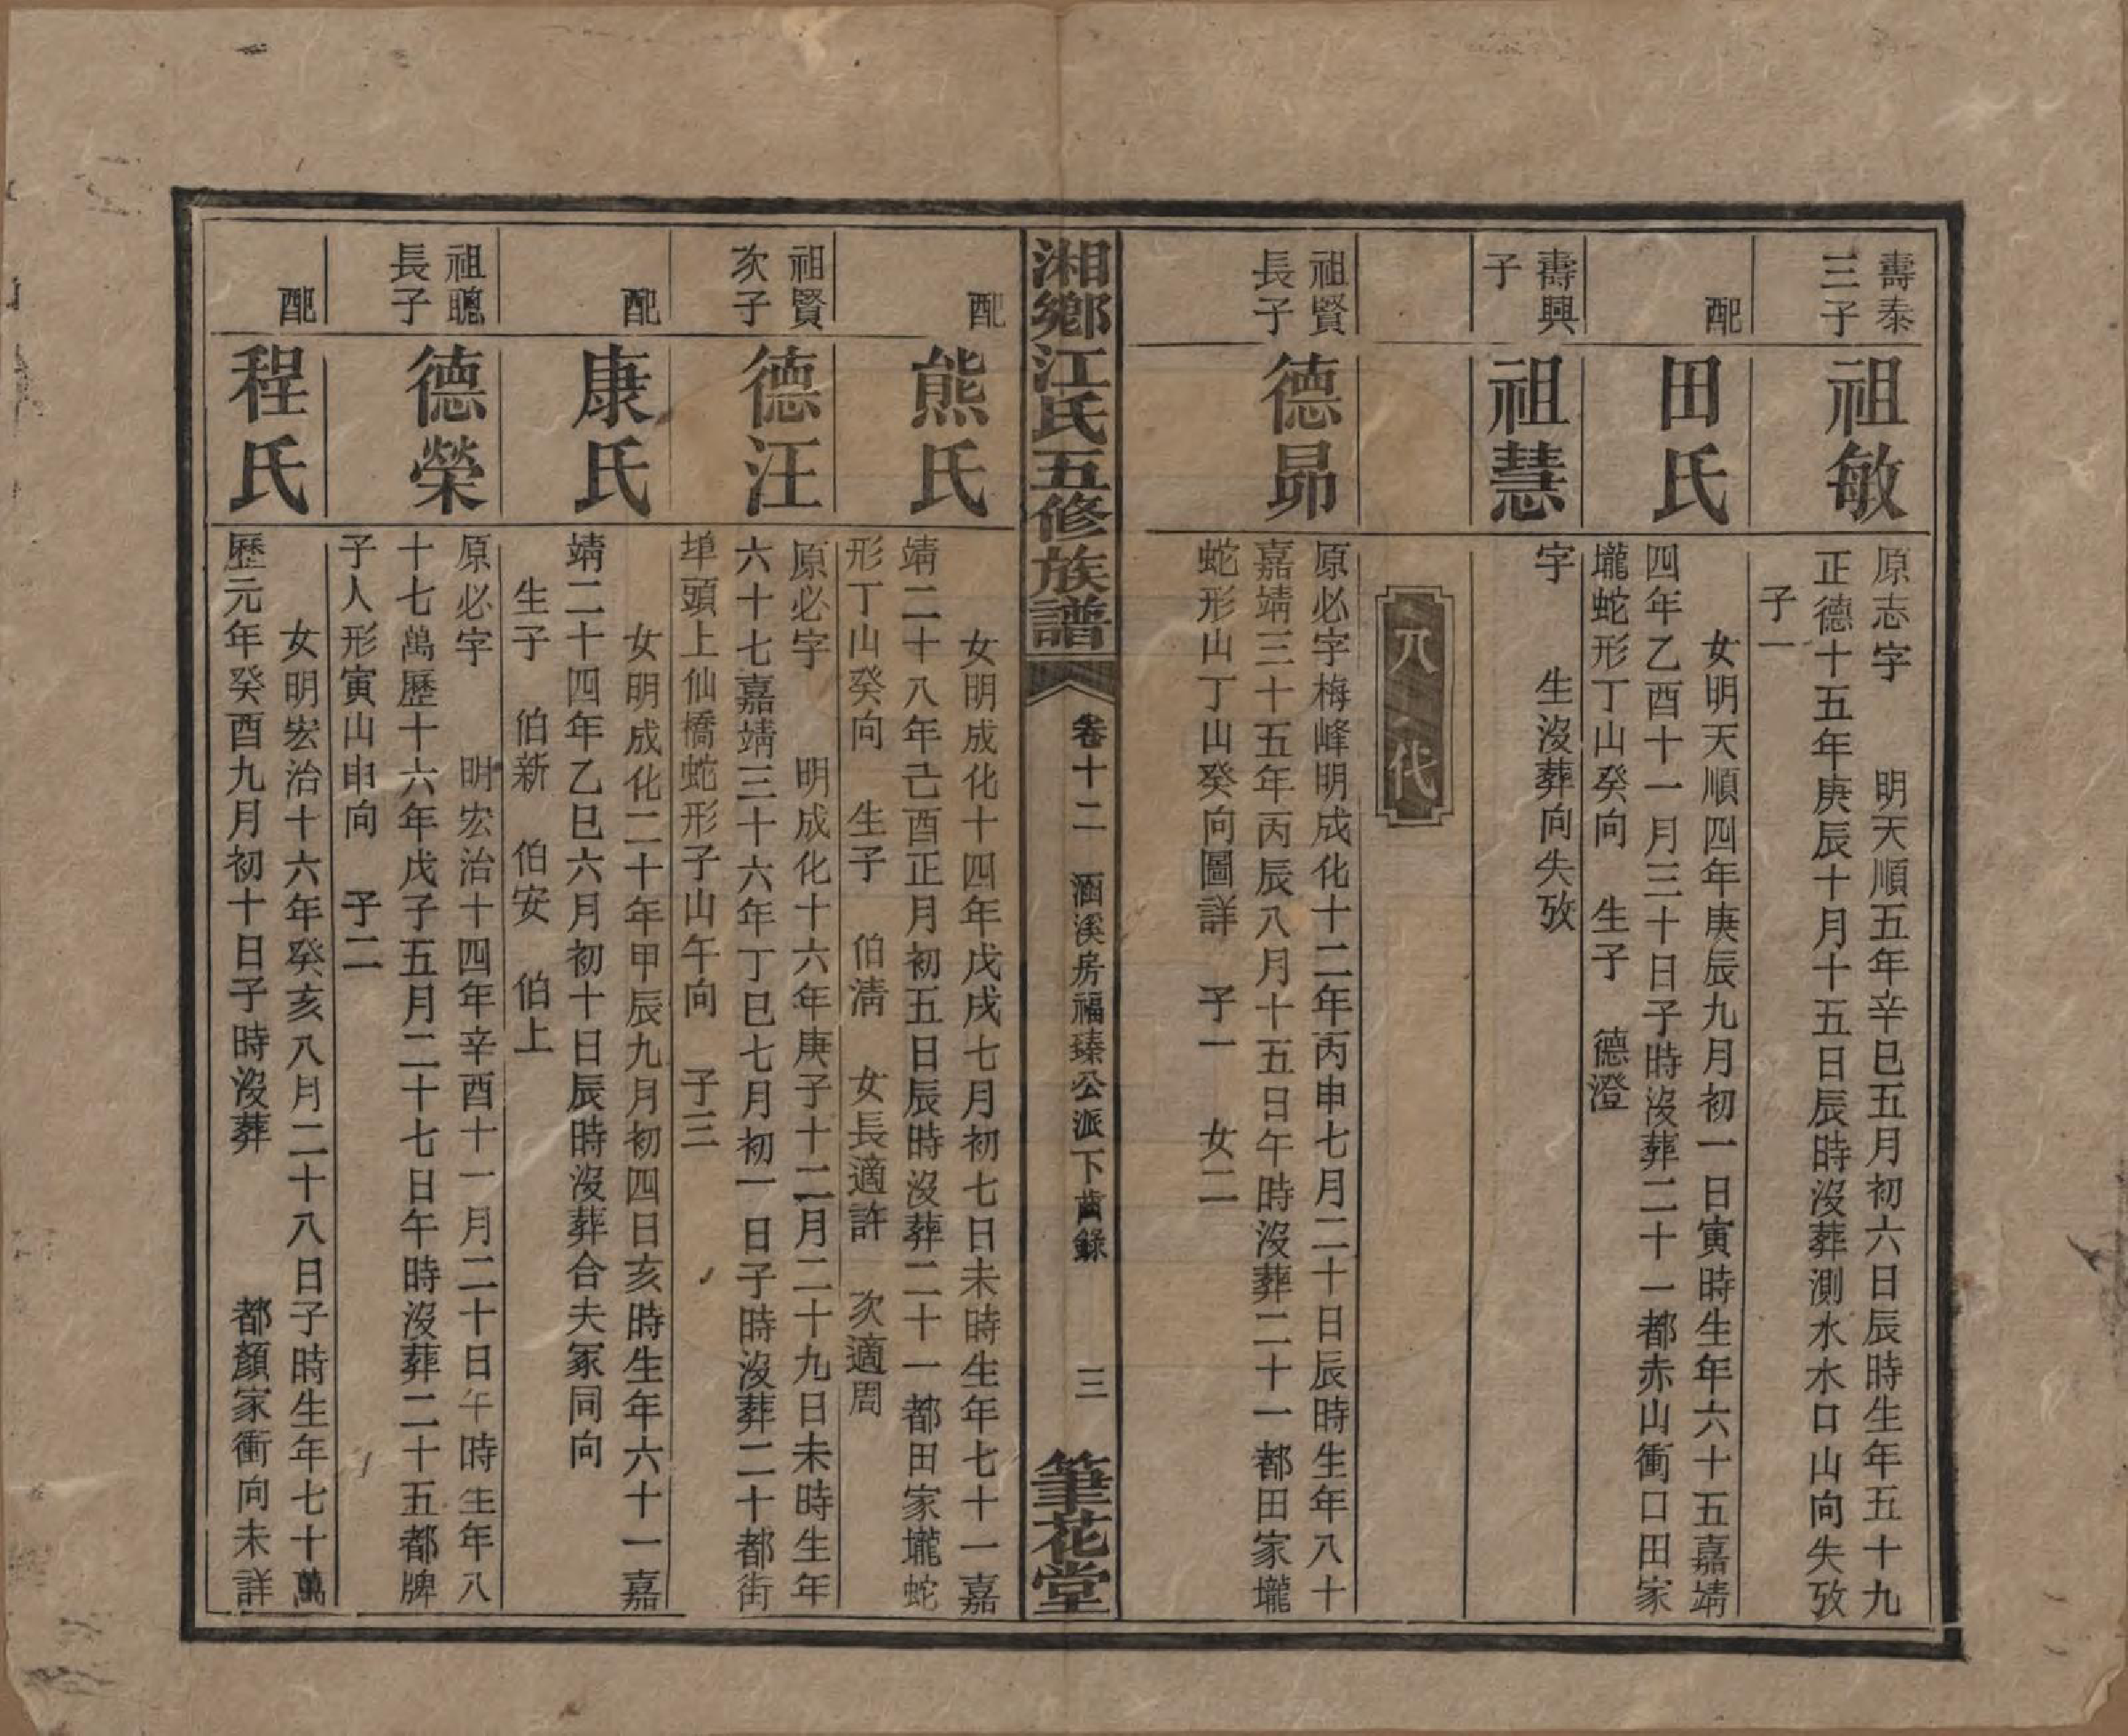 壽泰
三子
祖敏
原志字　明天順五年辛巳五月初六日辰時生年五十九
正德十五年庚辰十月十五日辰時沒葬測水水口山向失攷
子一
配
田氏
女明天順四年庚辰九月初一日寅時生年六十五嘉靖
四年乙酉十一月三十日子時沒葬二十一都赤山衝口田家
壠蛇形丁山癸向　生子　德澄
壽興
子
祖慧
字　生沒葬向失攷
八代
祖賢
長子
德昴
原必字梅峰明成化十二年丙申七月二十日辰時生年八十
嘉靖三十五年丙辰八月十五日午時沒葬二十一都田家壠
蛇形山丁山癸向圖詳　子一　女二
湘鄉江氏五修族譜
卷十二　涵溪房福臻公派下齒錄
三
筆花堂
配
熊氏
女明成化十四年戊戌七月初七日未時生年七十一嘉
靖二十八年己酉正月初五日辰時沒葬二十一都田家壠蛇
形丁山癸向　生子　伯清　女長適許　次適周
祖賢
次子
德汪
原必字　明成化十六年庚子十二月二十九日未時生年
六十七嘉靖三十六年丁巳七月初一日子時沒葬二十都街
埠頭上仙橋蛇形子山午向　子三
配
康氏
女明成化二十年甲辰九月初四日亥時生年六十一嘉
靖二十四年乙巳六月初十日辰時沒葬合夫冢同向
生子　伯新　伯安　伯上
祖聰
長子
德榮
原必字　明宏治十四年辛酉十一月二十日午時生年八
十七萬歷十六年戊子五月二十七日午時沒葬二十五都牌
子人形寅山申向　子二
配
程氏
女明宏治十六年癸亥八月二十八日子時生年七十萬
歷元年癸酉九月初十日子時沒葬　都顏家衝向未詳